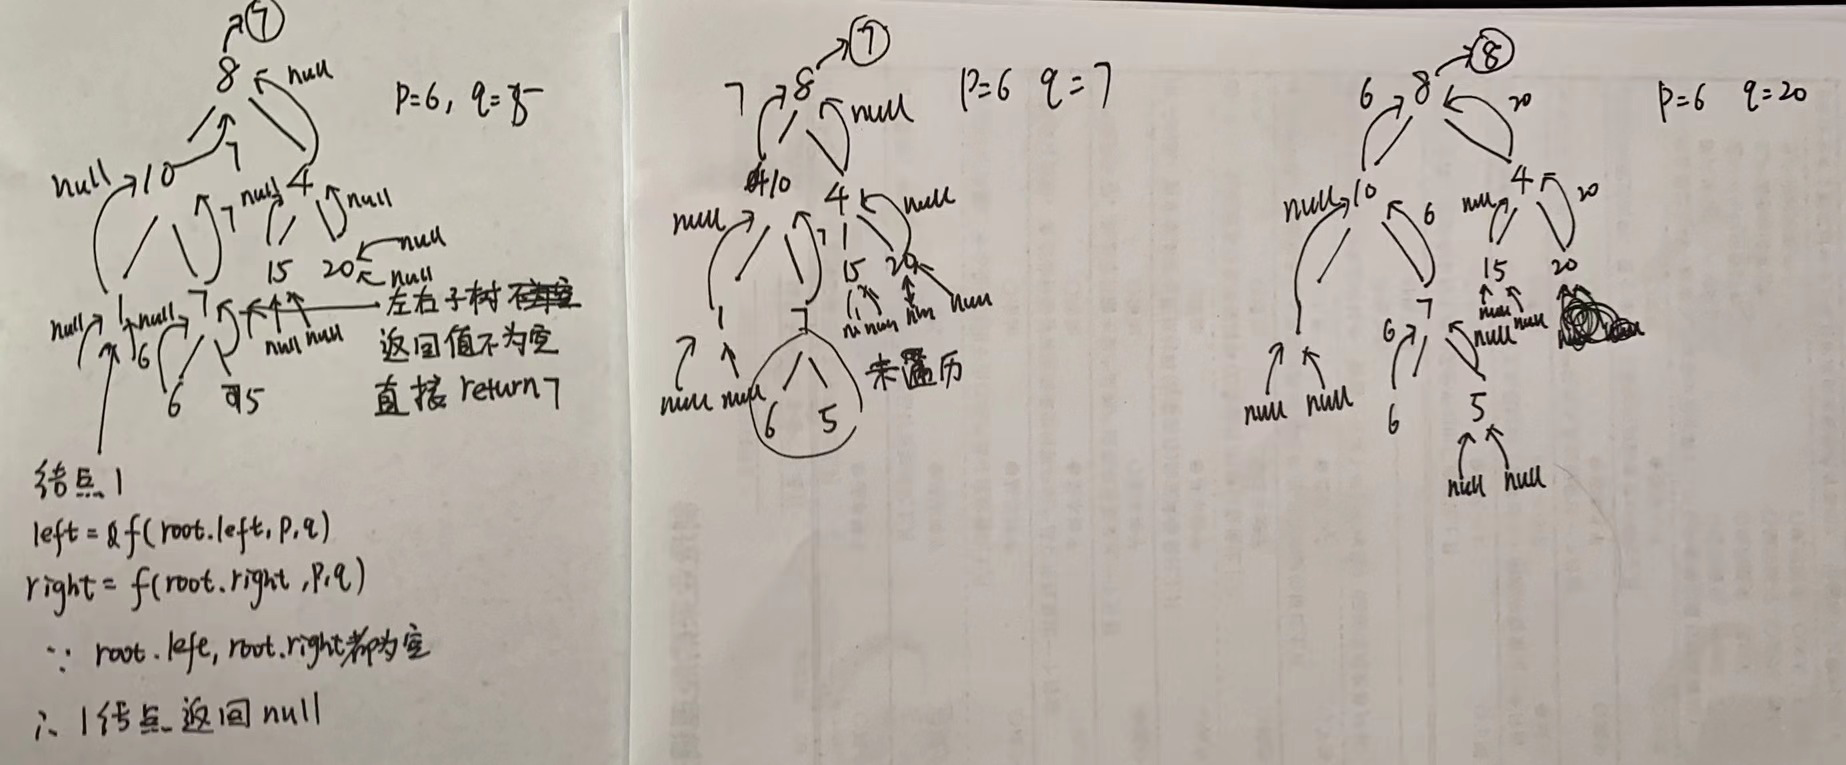 7
8
null
p=6, q=5
null
10
7
null
4
null
7
15
20
null
null
null
1
null
7
左右子树
6
null
null
返回值不为空
6
5
直接return 7
结点1
left = f(root.left, p,q)
right = f(root.right, p,q)
∵ root.left, root.right都为空
∴ 1结点返回null
7
7
8
p=6 q=7
null
10
4
null
null
7
15
20
1
7
null
null
null
null
未遍历
6
5
8
6
8
20
p=6 q=20
null
10
null
4
20
6
15
20
1
7
null
null
6
null
null
null
6
5
null
null